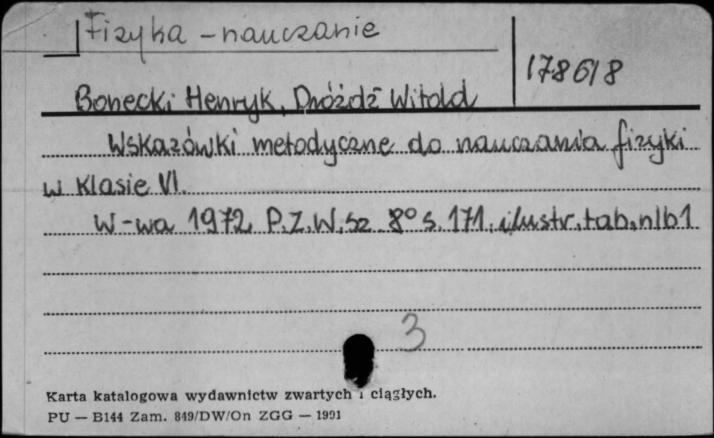 Fizyka - nauczanie
178618
Bonecki Henryk, Dróżdż Witold
Wskazówki metodyczne do nauczania fizyki
w klasie VI.
W-wa 1972, P.Z.W.Sz 8° s. 171, ilustr. tab. nlb1
3
Karta katalogowa wydawnictw zwartych i ciągłych.
PU — B144 Zam. 849/DW/On ZGG — 1991